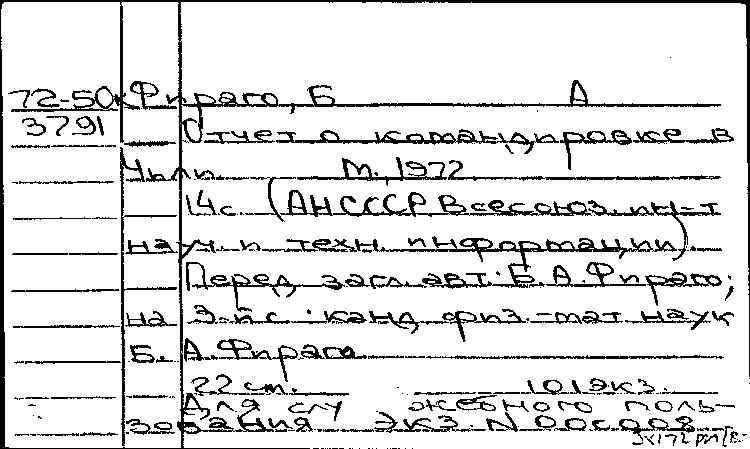 72-50к Фираго, Б А
3791 Отчет о командировке в
Чили М., 1972
14с. (АН СССР. Всесоюз. ин-т
науч. и техн. информации).
Перед загл. авт.: Б. А. Фираго;
на 3-й с.: канд. физ.-мат. наук
Б. А. Фираго
22 см. 101 экз.
Для служебного поль-
зования экз. N 000008